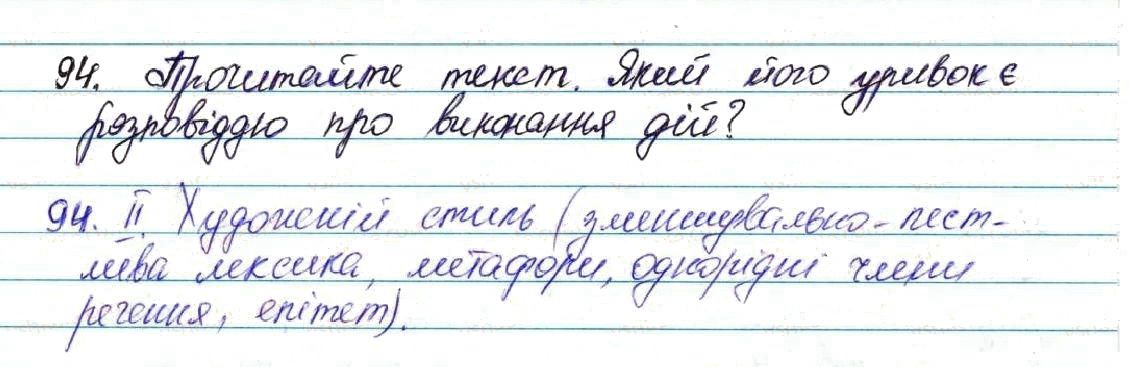 94. Прочитайте текст. Який його уривок є
розповіддю про виконання дій?
94. II. Художній стиль (зменшувально-пест-
лива лексика, метафори, однорідні члени
речення, епітет).